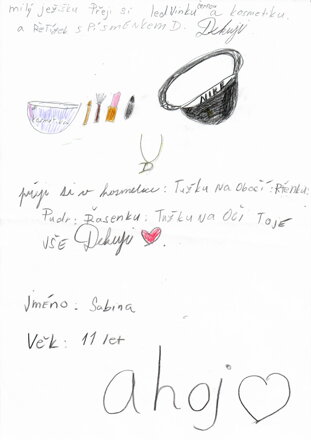 milý ježíšku Přeji si ledvinku černou a kosmetiku.
a Řetízek s PísmENKEM D. Dekuji
D
přeji si v kosmetice: Tužku NA Obočí: Řtěnku:
Pudr: Řasenku: Tužku NA Oči TO JE
VŠE Dekuji
jméno: Sabina
Věk: 11 let
ahoj